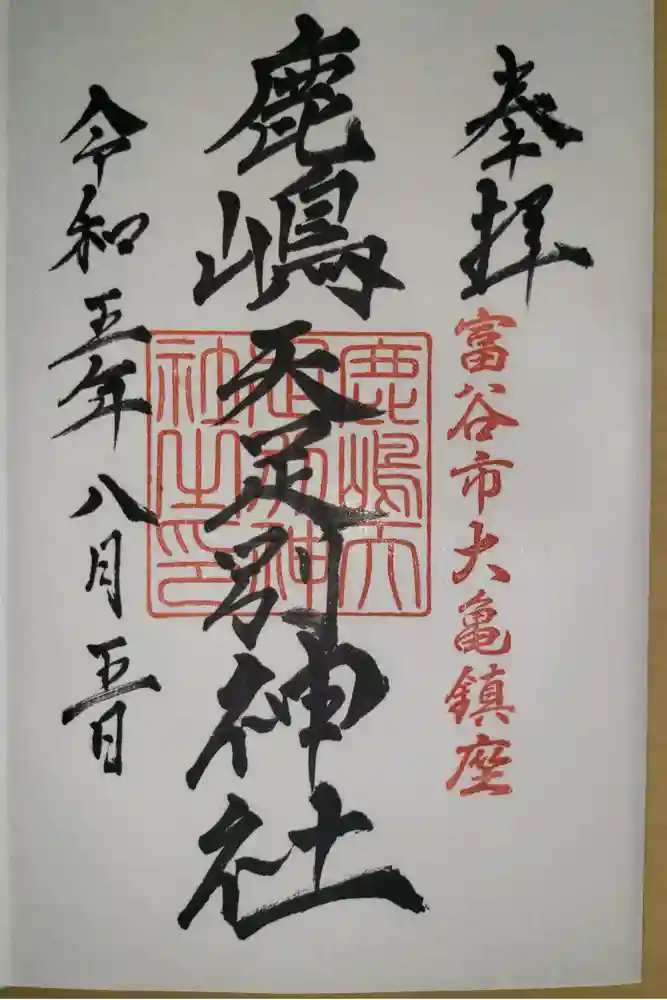 奉拝
富谷市大亀鎮座
鹿嶋天足別神社
鹿嶋天
足別神
社之印
令和五年八月五日